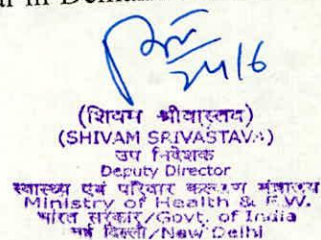 in
24/6
(शिवम श्रीवास्तव)
(SHIVAM SRIVASTAVA)
उप निदेशक
Deputy Director
स्वास्थ्य एवं परिवार कल्याण मंत्रालय
Ministry of Health & F.W.
भारत सरकार/Govt. of India
नई दिल्ली/New Delhi